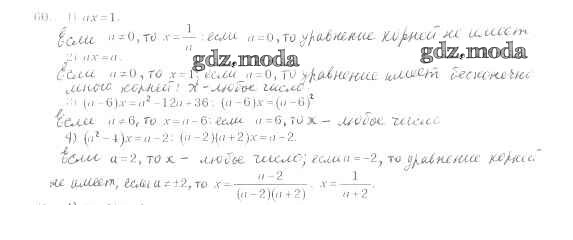 60. 1) ax = 1.
Если a ≠ 0, то x = 1/a; если a = 0, то уравнение корней не имеет
2) ax = a.
gdz.moda
gdz.moda
Если a ≠ 0, то x = 1; если a = 0, то уравнение имеет бесконечно
много корней: x – любое число
3) (a − 6)x = a² − 12a + 36; (a − 6)x = (a − 6)²
Если a ≠ 6, то x = a − 6; если a = 6, то x – любое число
4) (a² − 4)x = a − 2; (a − 2)(a + 2)x = a − 2.
Если a = 2, то x – любое число; если a = −2, то уравнение корней
не имеет, если a ≠ ±2, то x = a − 2/(a − 2)(a + 2). x = 1/a + 2.